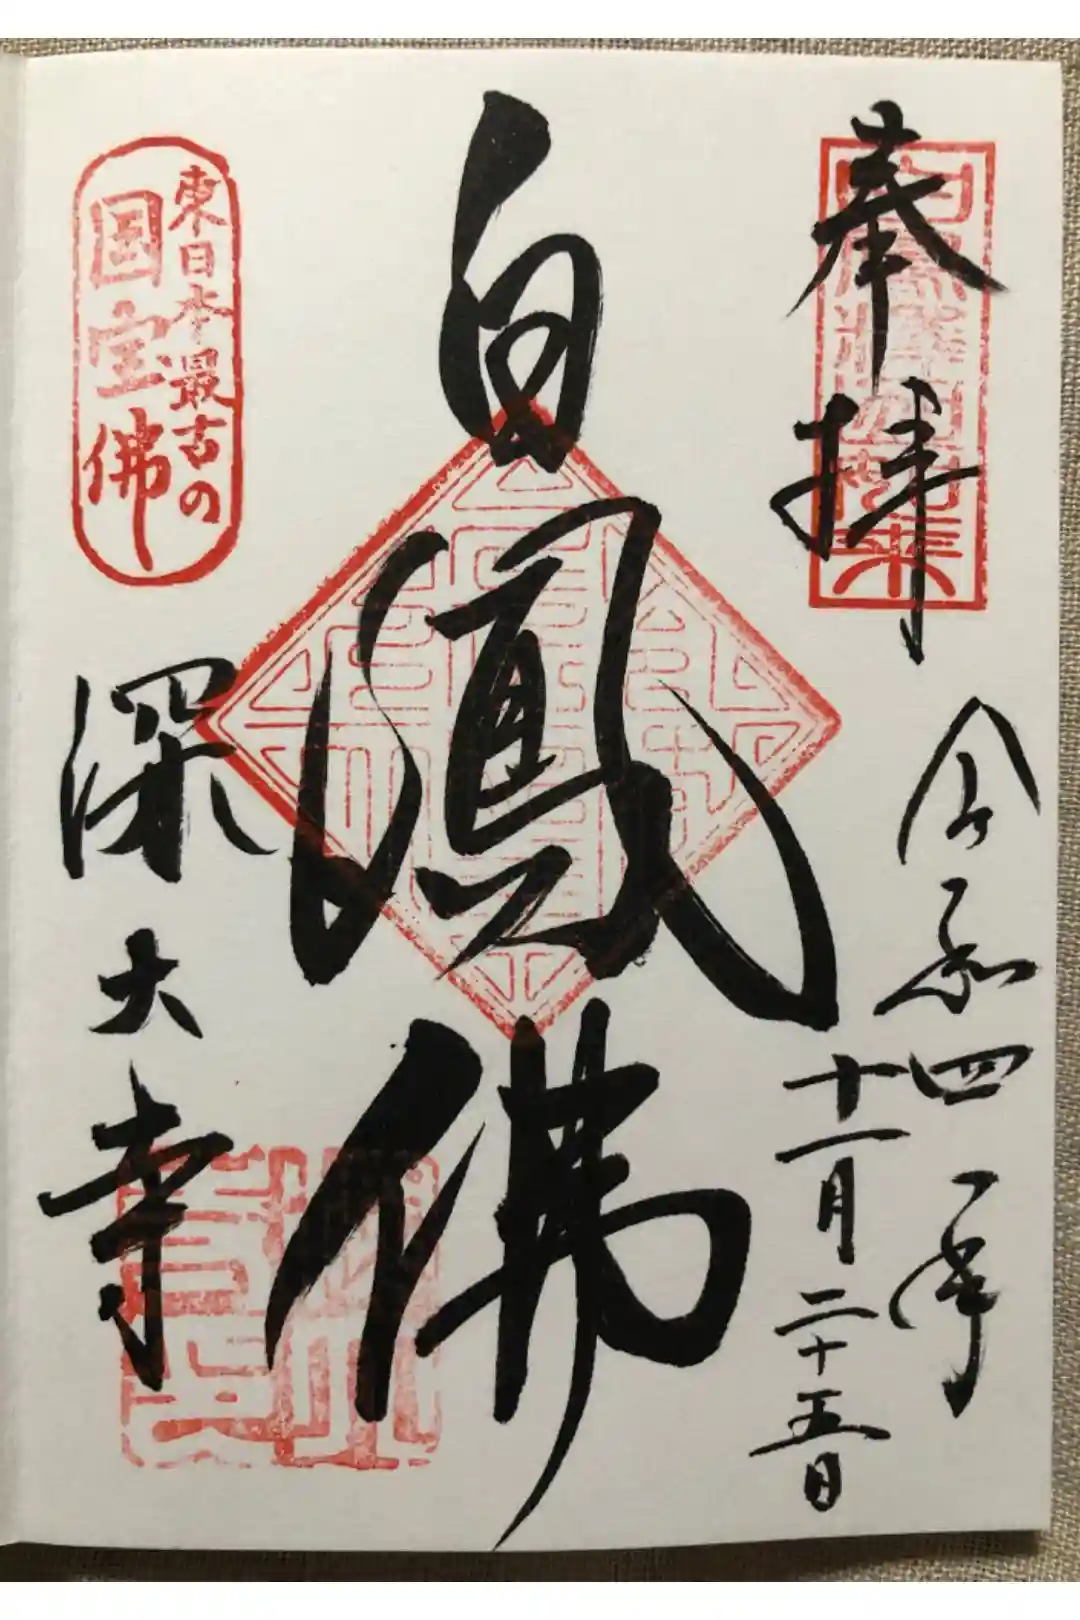 奉拝
令和四年
十一月二十五日
白鳳佛
東日本最古の
国宝佛
深大寺